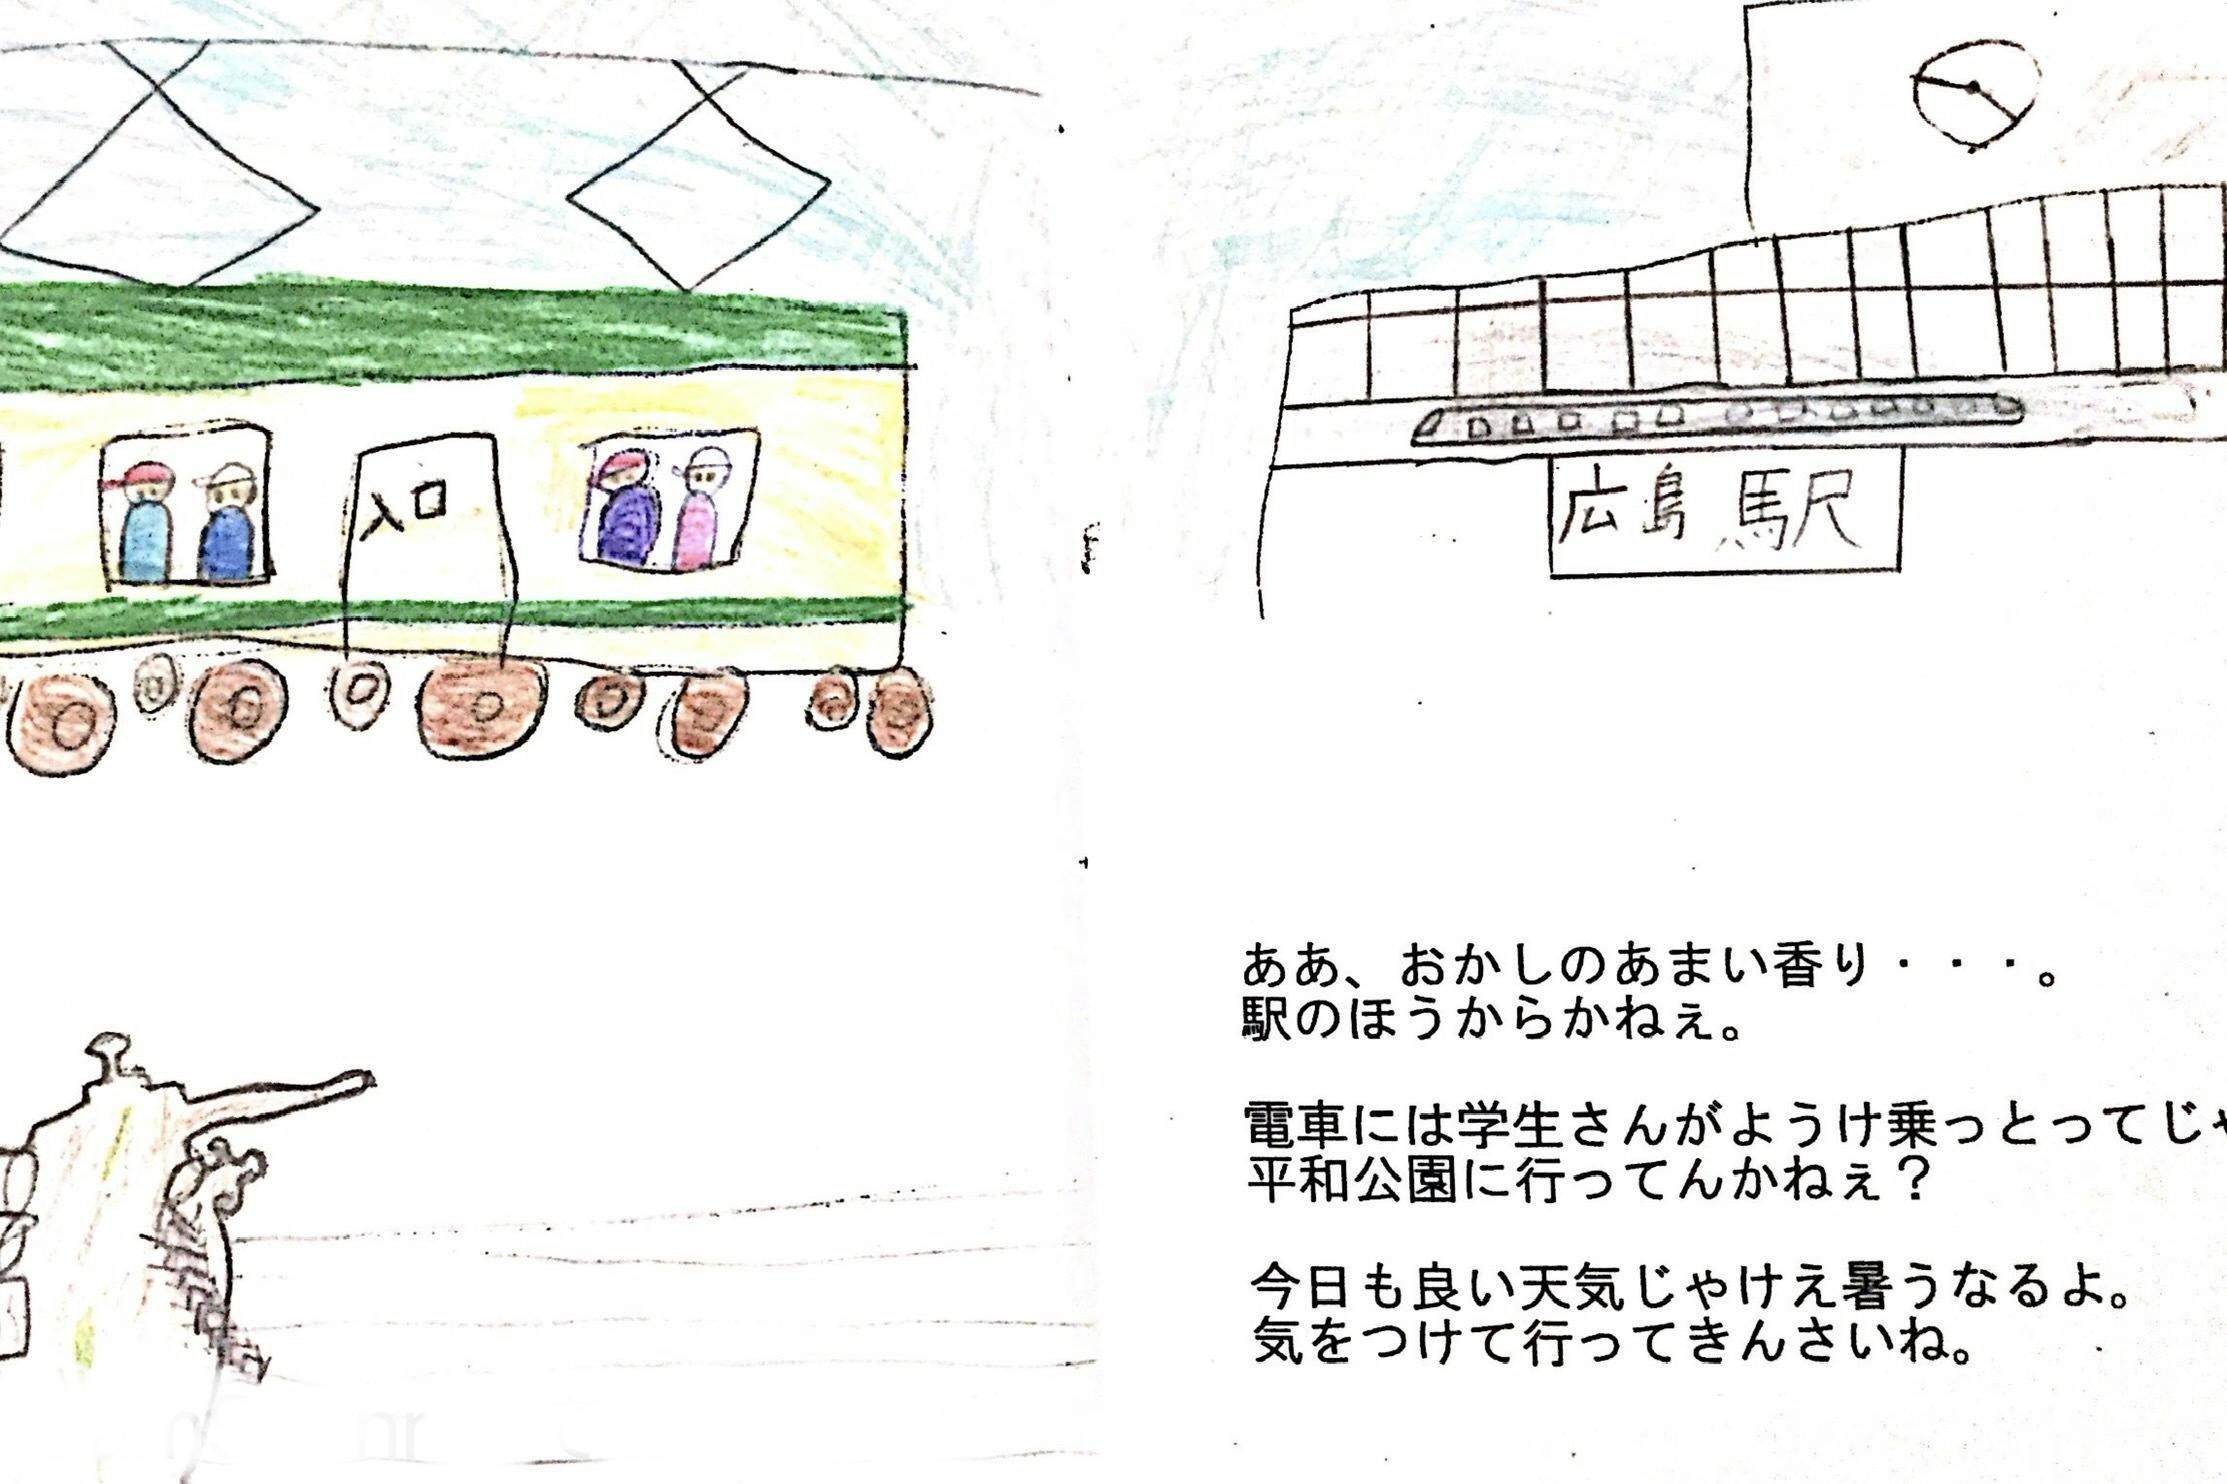 入口
広島駅
ああ、おかしのあまい香り・・・。
駅のほうからかねぇ。
電車には学生さんがようけ乗っとってじゃ
平和公園に行ってんかねぇ？
今日も良い天気じゃけえ暑うなるよ。
気をつけて行ってきんさいね。